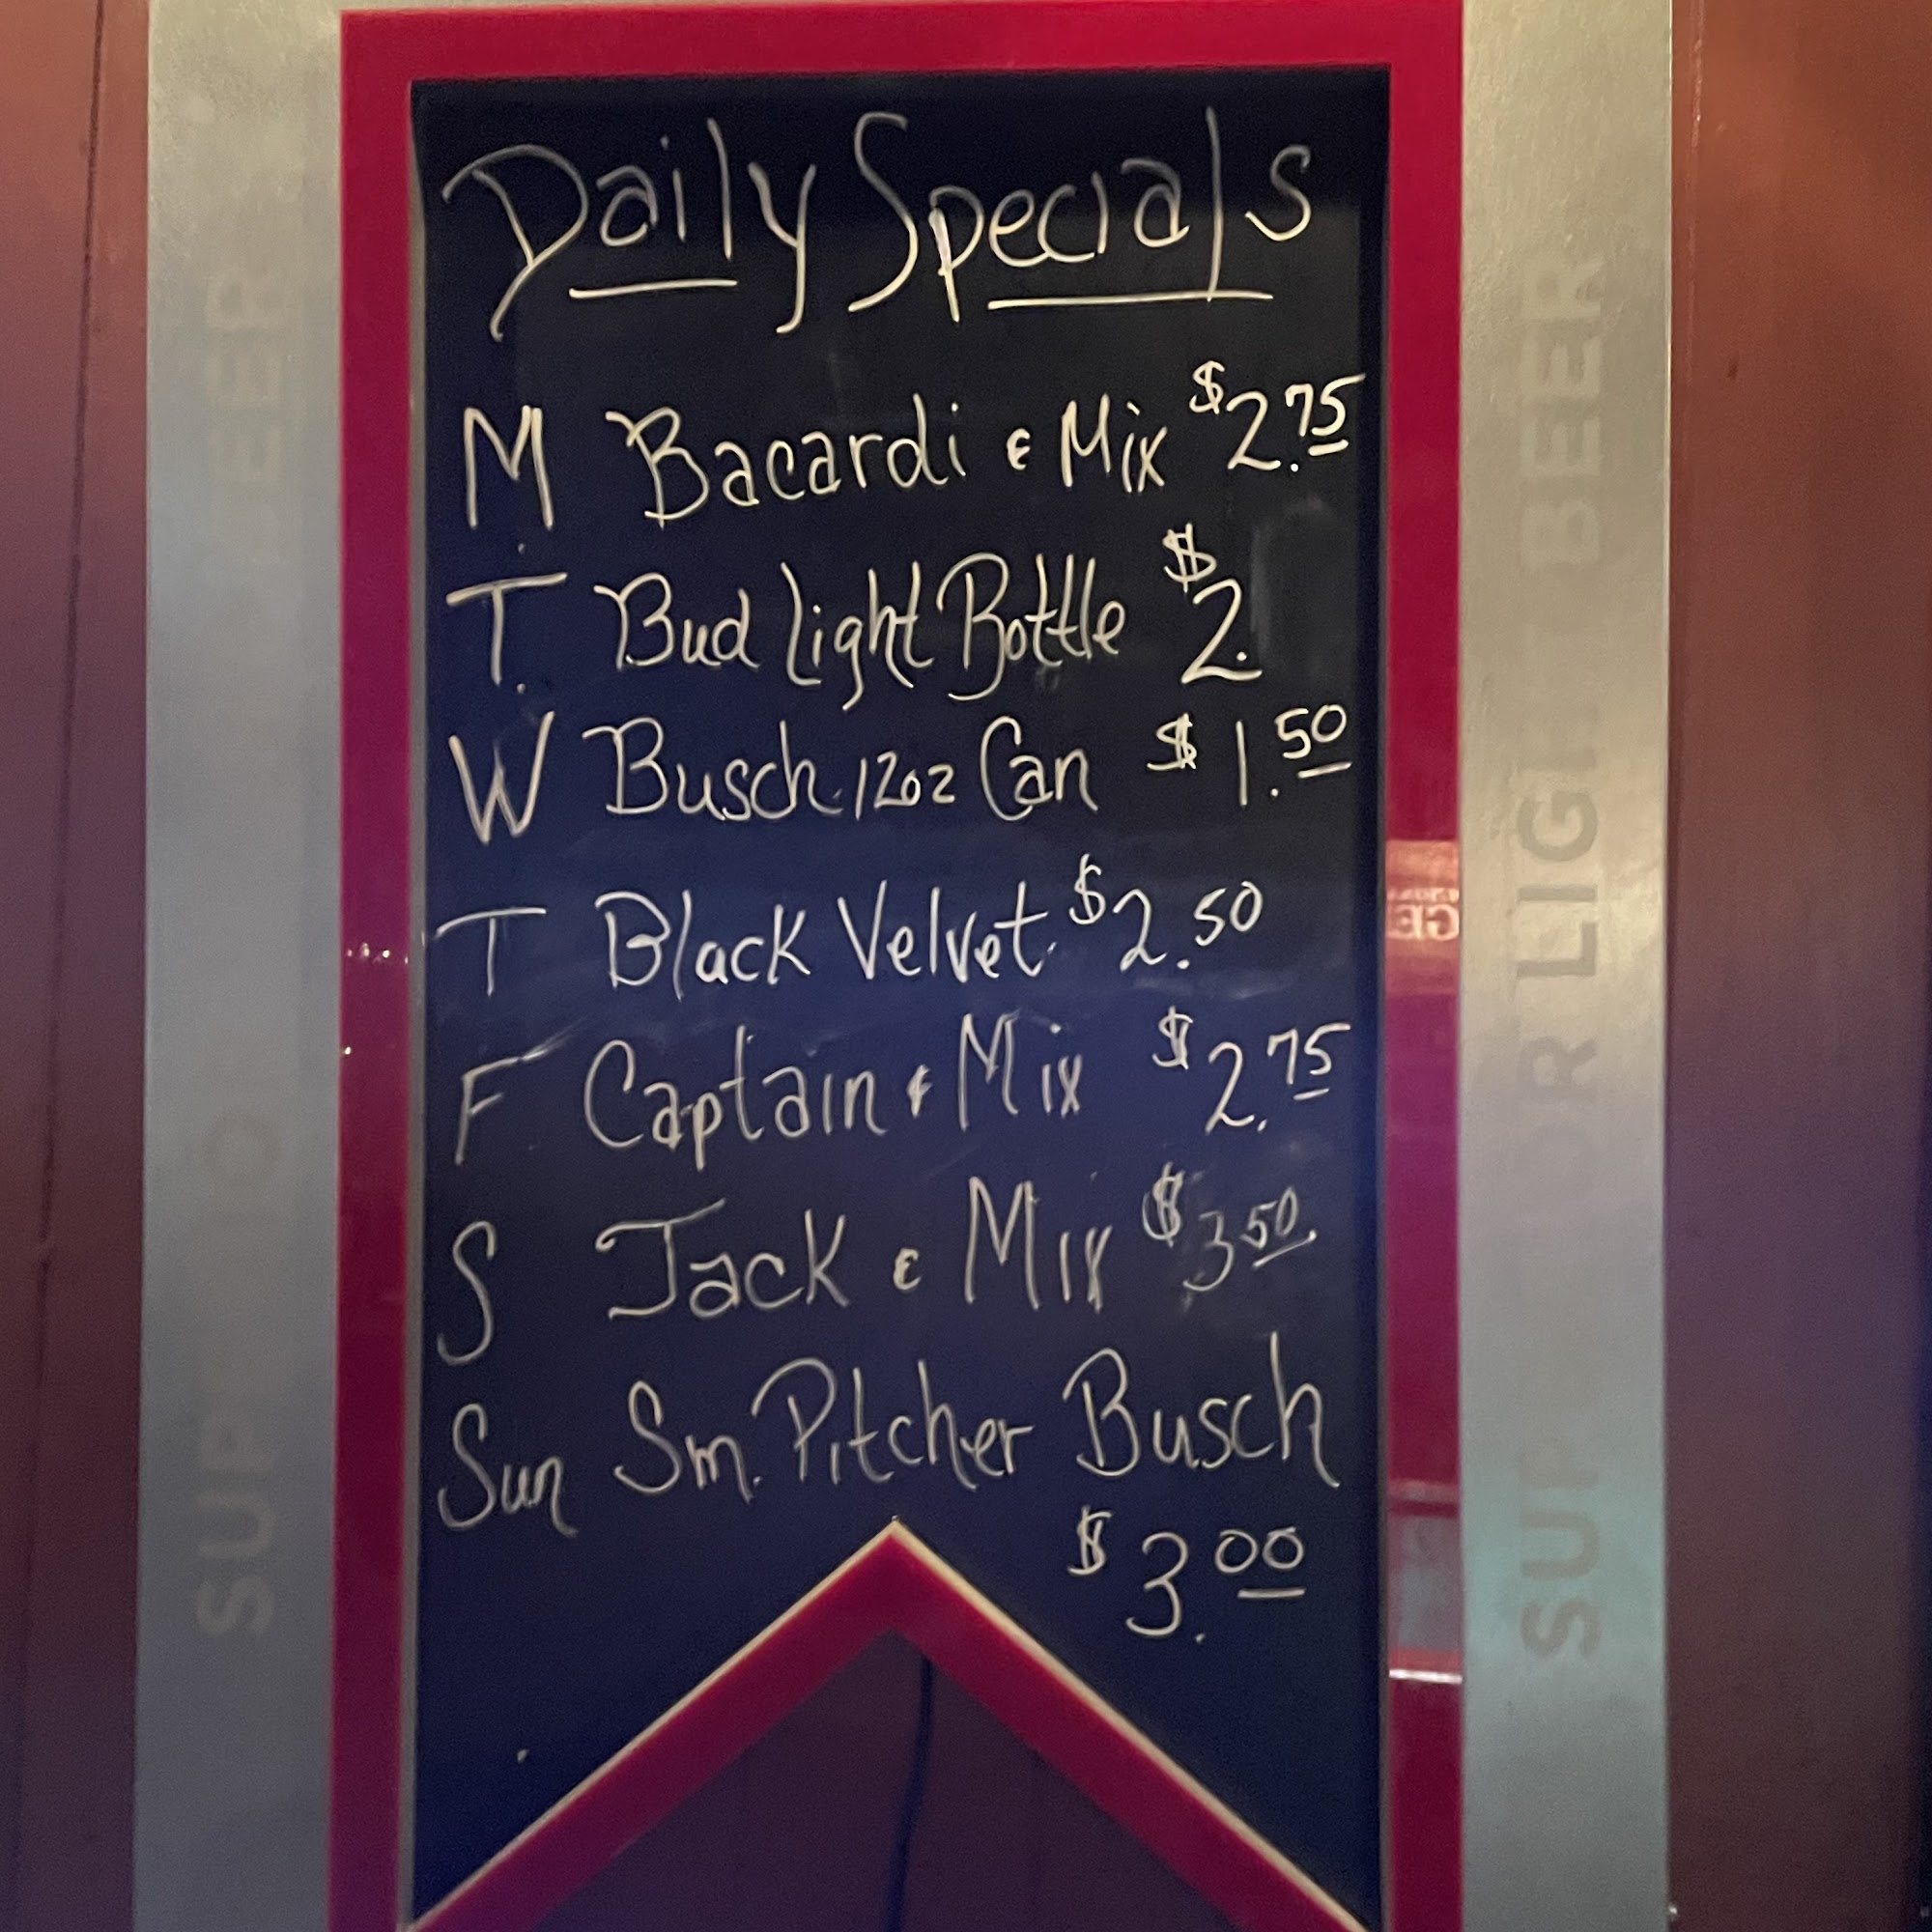 Daily Specials
M Bacardi & Mix $2.75
T. Bud Light Bottle $2.
W Busch 12oz Can $1.50
T Black Velvet $2.50
F Captain & Mix $2.75
S Jack & Mix $3 50
Sun Sm. Pitcher Busch
$3.00
SUP BEER
SUP OR LIGHT BEER